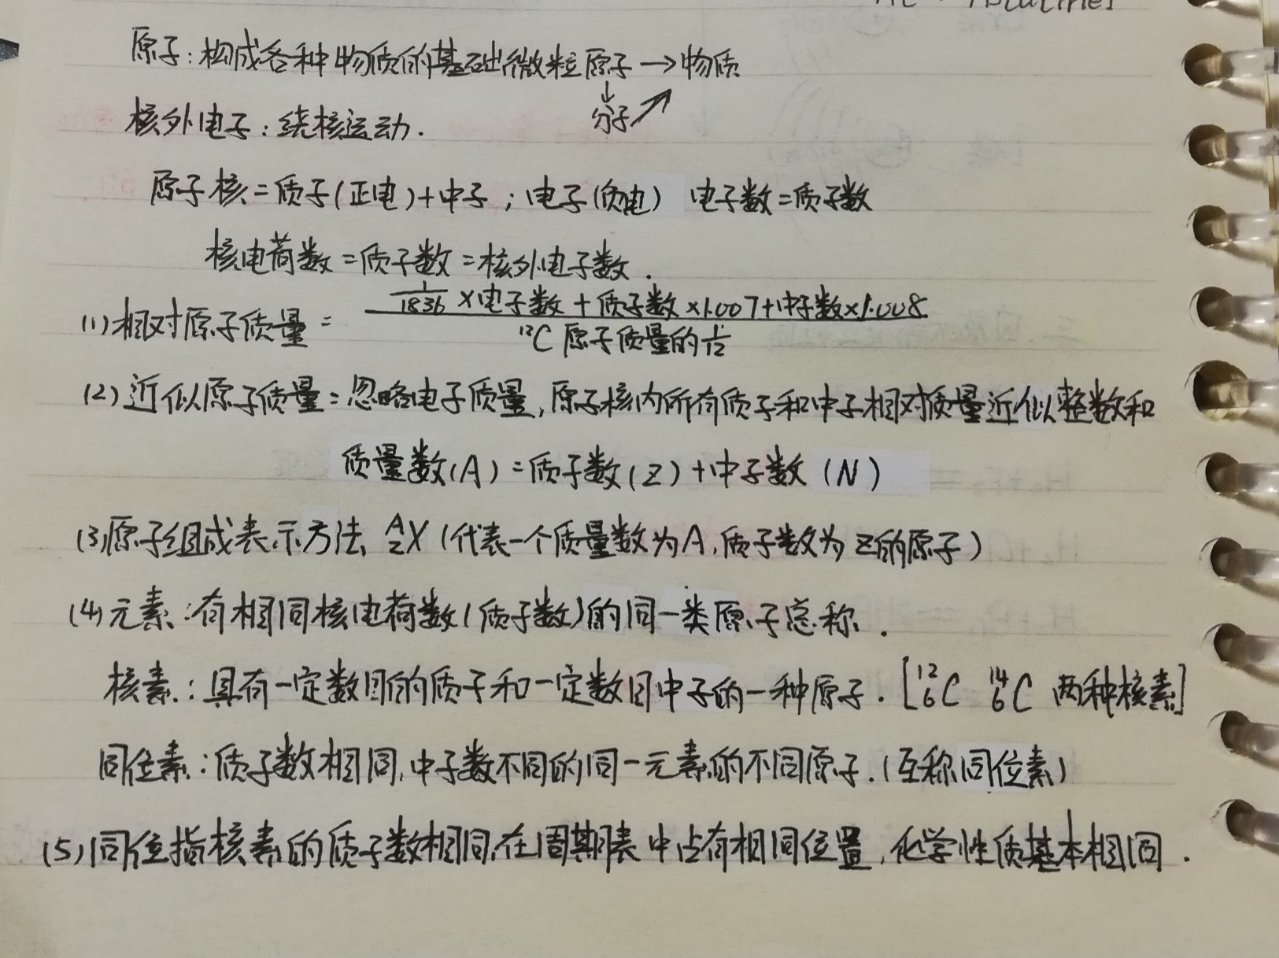 原子:构成各种物质的基础微粒 原子→物质
↓
分子↗
核外电子:绕核运动.
原子核=质子(正电)+中子;电子(负电) 电子数=质子数
核电荷数=质子数=核外电子数.
(1)相对原子质量= \frac{\frac{1}{1836}×电子数+质子数×1.007+中子数×1.008}{¹²C原子质量的\frac{1}{12}}
(2)近似原子质量:忽略电子质量,原子核内所有质子和中子相对质量近似整数和
质量数(A)=质子数(Z)+中子数(N)
(3)原子组成表示方法 ᴬ_ZX(代表一个质量数为A,质子数为Z的原子)
(4)元素:有相同核电荷数(质子数)的同一类原子总称.
核素:具有一定数目的质子和一定数目中子的一种原子.[¹²₆C ¹⁴₆C 两种核素]
同位素:质子数相同,中子数不同的同一元素的不同原子.(互称同位素)
(5)同位指核素的质子数相同,在周期表中占有相同位置,化学性质基本相同.